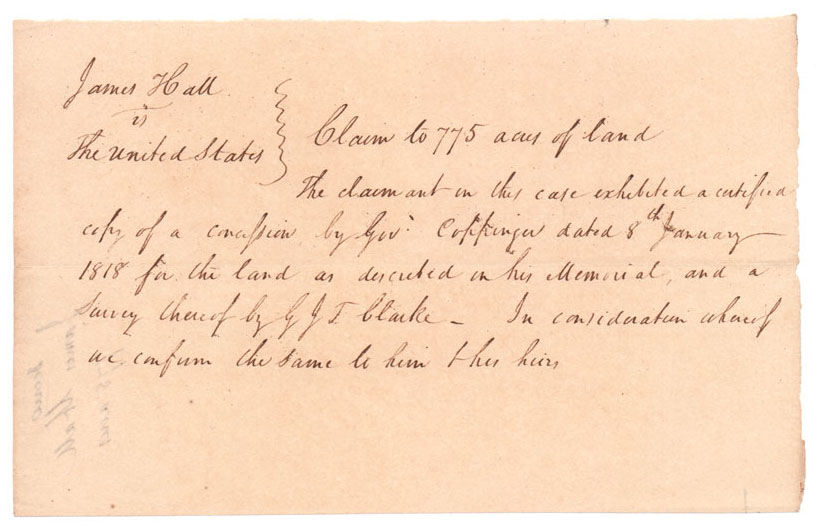 James Hall
vs
The United States
Claim to 775 acres of land
The claimant in this case exhibited a certified
copy of a concession by Gov.r Coppinger dated 8th January
1818 for the land as described in his Memorial, and a
Survey thereof by G J F Clarke – In consideration whereof
we confirm the same to him & his heirs
James Hall